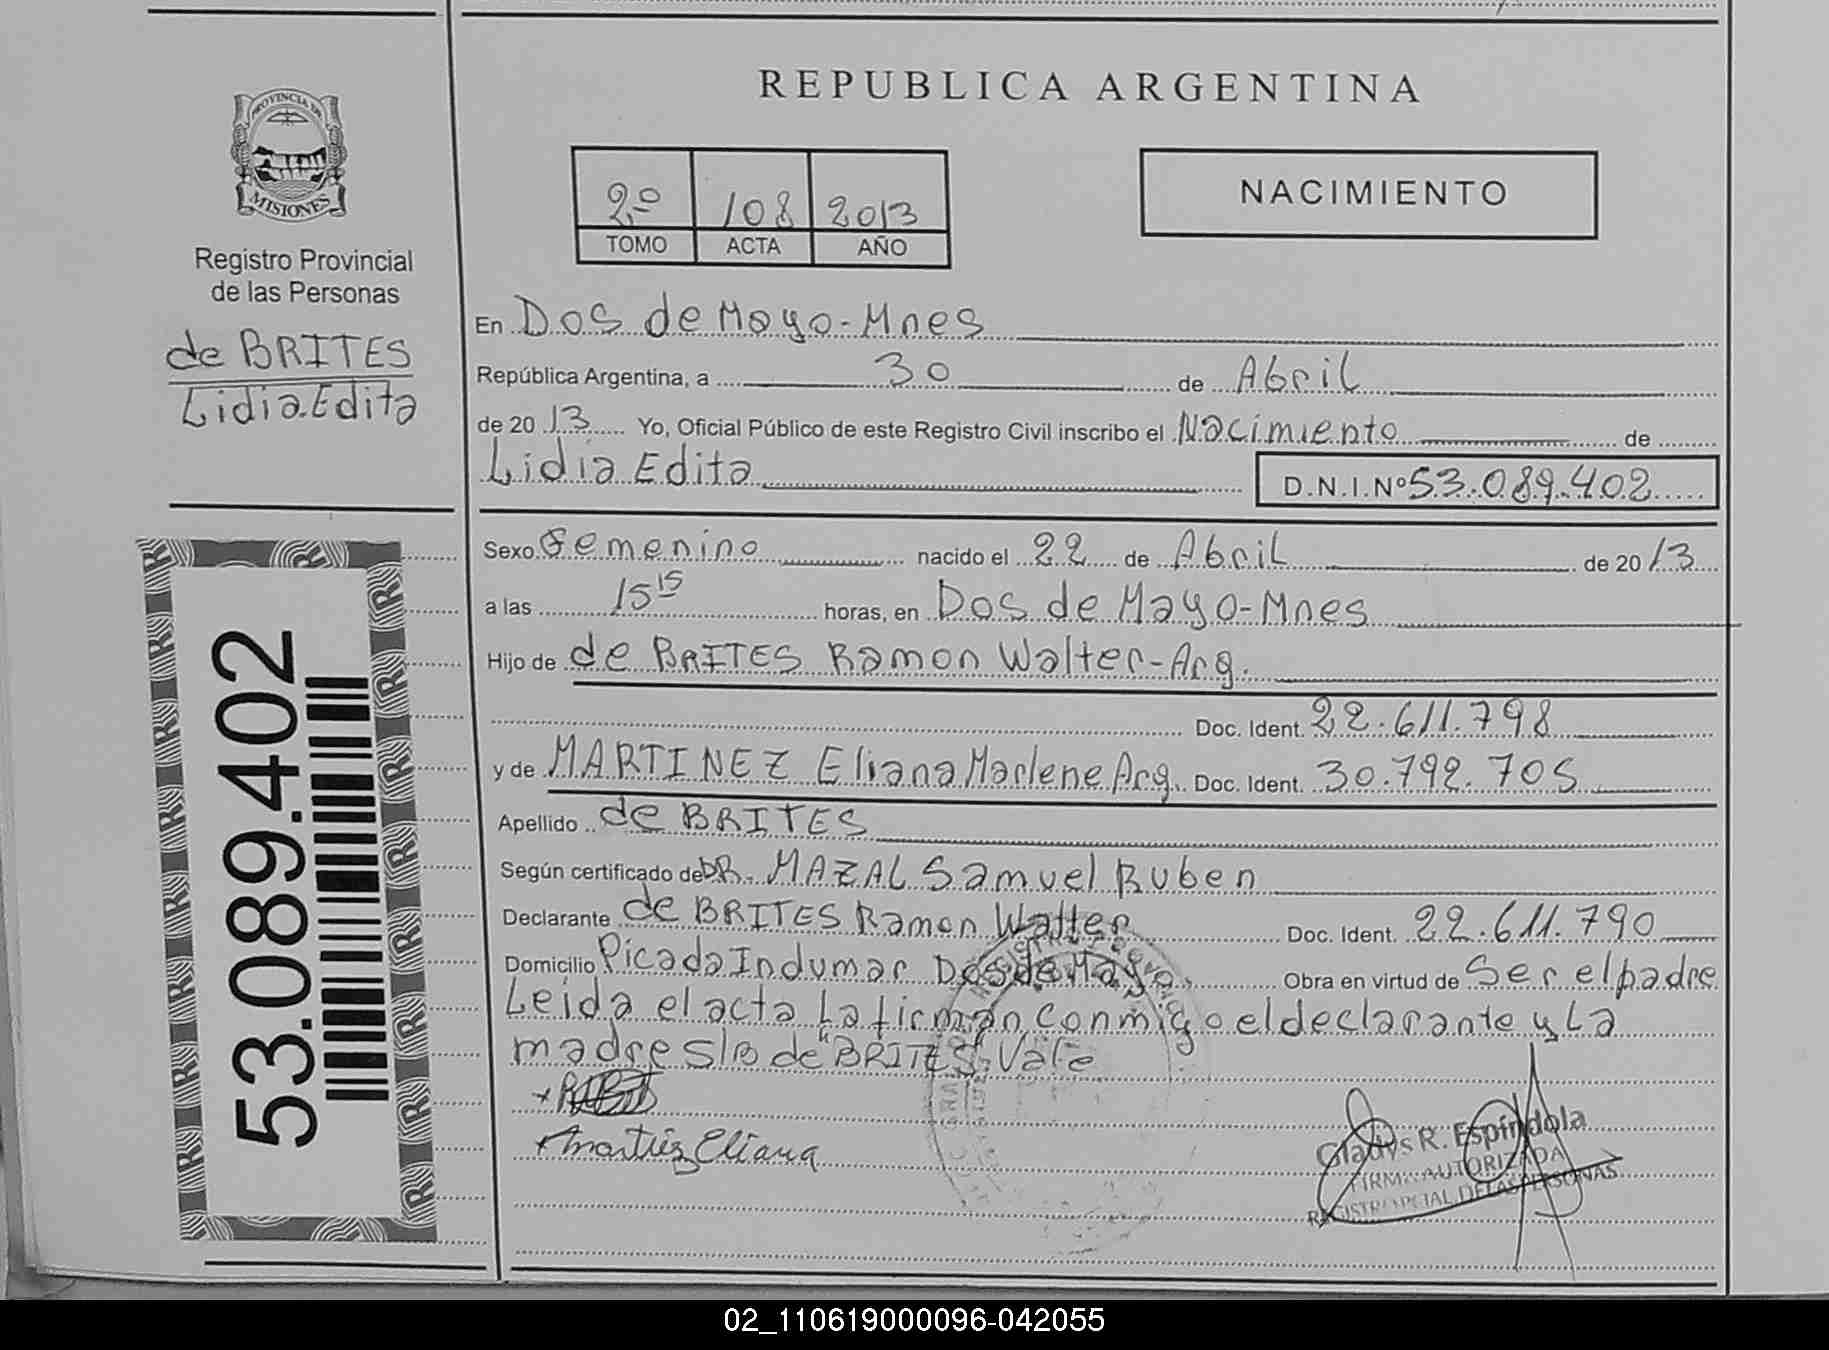 PROVINCIA DE
MISIONES
Registro Provincial
de las Personas
de BRITES
Lidia Edita
53.089.402
REPUBLICA ARGENTINA
2º 108 2013
TOMO ACTA AÑO
NACIMIENTO
En Dos de Mayo-Mnes
República Argentina, a 30 de Abril
de 2013 Yo, Oficial Público de este Registro Civil inscribo el Nacimiento de
Lidia Edita D.N.I.Nº 53.089.402
Sexo Femenino nacido el 22 de Abril de 2013
a las 15 15 horas, en Dos de Mayo-Mnes
Hijo de de BRITES Ramon Walter-Arg.
Doc. Ident. 22.611.798
y de MARTINEZ Eliana Marlene Arg. Doc. Ident. 30.792.705
Apellido de BRITES
Según certificado de DR. MAZAL Samuel Ruben
Declarante de BRITES Ramon Walter Doc. Ident. 22.611.790
Domicilio Picada Indumar Dos de Mayo Obra en virtud de Ser el padre
Leida el acta La firman conmigo el declarante y La
madre s/b de "BRITES" Vale
Martinez Eliana
Gladys R. Espíndola
FIRMA AUTORIZADA
REGISTRO PCIAL DE LAS PERSONAS
02_110619000096-042055